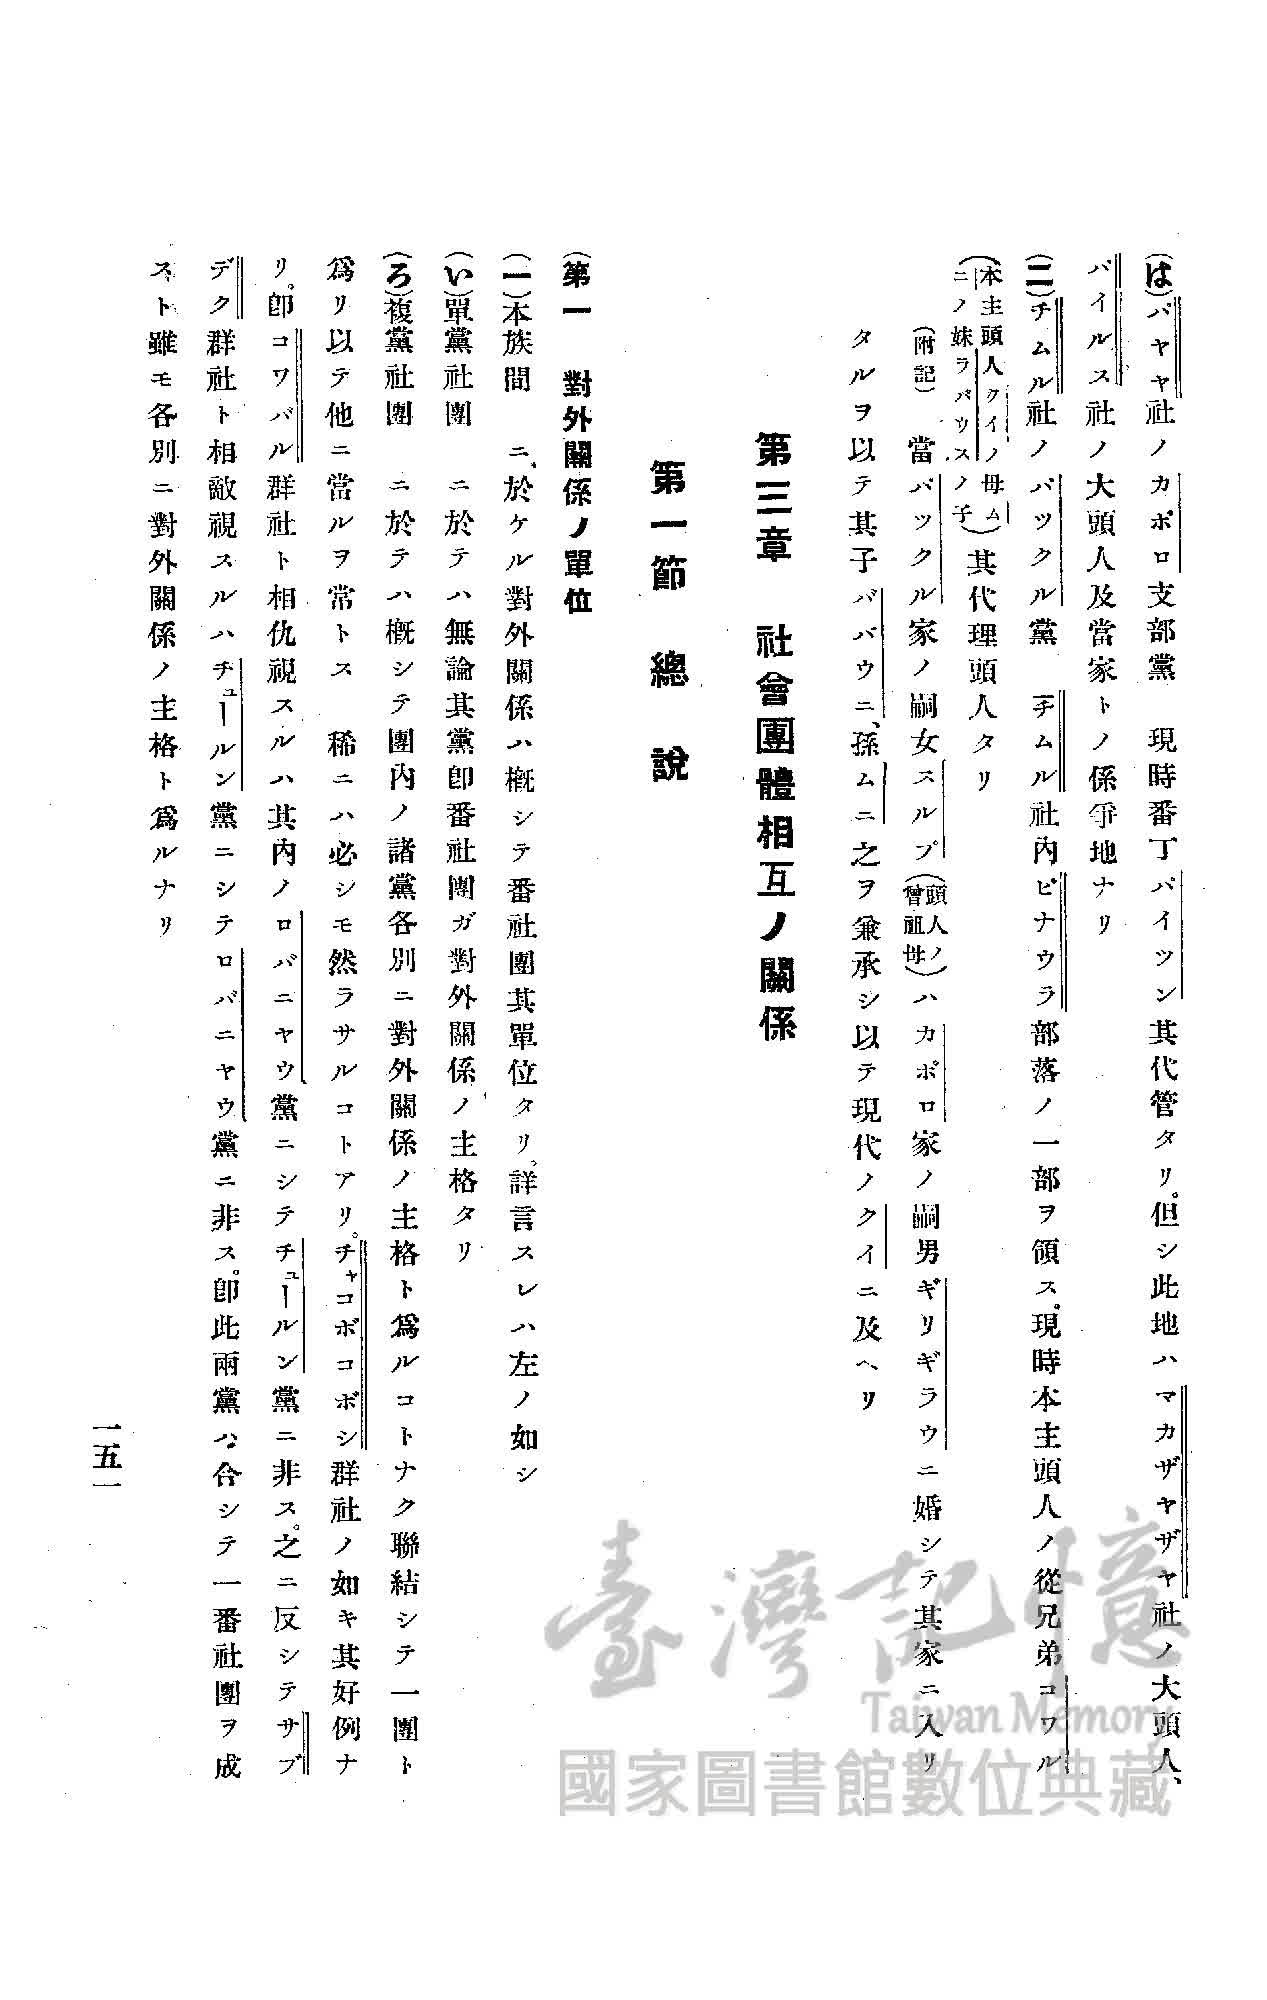 (は)パヤヤ社ノカポロ支部黨　現時番丁パイツン其代管タリ。但シ此地ハマカザヤザヤ社ノ大頭人、
パイルス社ノ大頭人及當家トノ係爭地ナリ
(ニ)チムル社ノバツクル黨　チムル社內ピナウラ部落ノ一部ヲ領ス。現時本主頭人ノ從兄弟コワル
(本主頭人クイノ母ム
ニノ妹ラパウスノ子)其代理頭人タリ
(附記)　當バツクル家ノ嗣女スルプ(頭人ノ
曾祖母)ハカポロ家ノ嗣男ギリギラウニ婚シテ其家ニ入リ
タルヲ以テ其子ババウニ、孫ムニ之ヲ兼承シ以テ現代ノクイニ及ヘリ
第三章　社會團體相互ノ關係
第一節　總說
(第一　對外關係ノ單位
(一)本族間　ニ於ケル對外關係ハ槪シテ番社團其單位タリ。詳言スレハ左ノ如シ
(い)單黨社團　ニ於テハ無論其黨卽番社團ガ對外關係ノ主格タリ
(ろ)複黨社團　ニ於テハ槪シテ團內ノ諸黨各別ニ對外關係ノ主格ト爲ルコトナク聯結シテ一團ト
爲リ以テ他ニ當ルヲ常トス　稀ニハ必シモ然ラサルコトアリ。チャコボコボシ群社ノ如キ其好例ナ
リ。卽コワバル群社ト相仇視スルハ其內ノロバニヤウ黨ニシテチュールン黨ニ非ス。之ニ反シテサブ
デク群社ト相敵視スルハチュールン黨ニシテロバニヤウ黨ニ非ス。卽此兩黨ハ合シテ一番社團ヲ成
スト雖モ各別ニ對外關係ノ主格ト爲ルナリ
一五一
臺灣記憶
Taiwan Memory
國家圖書館數位典藏